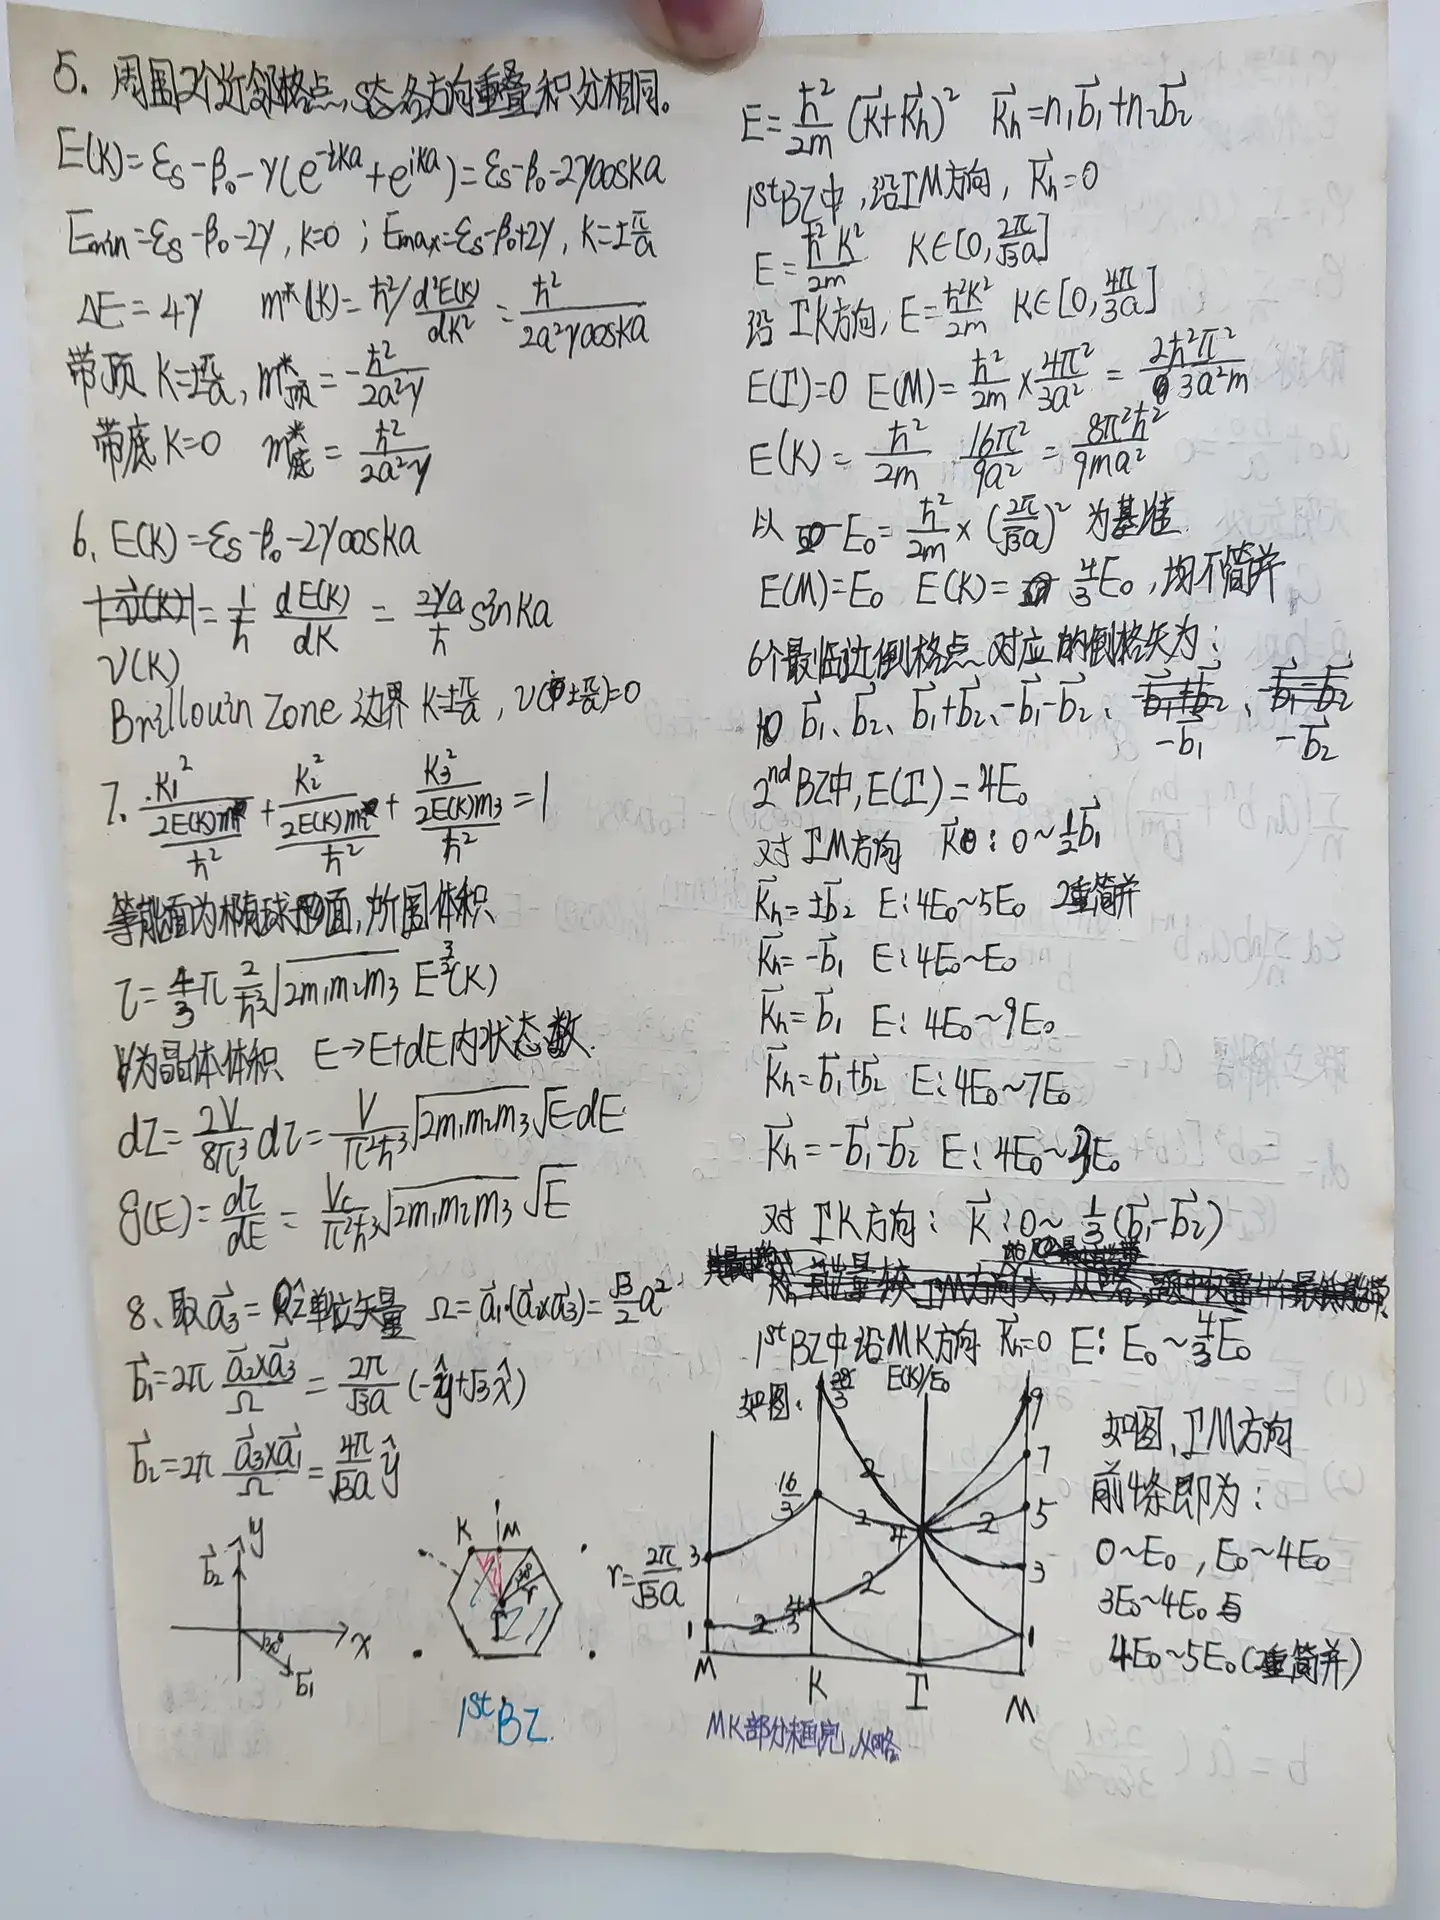 5. 周围2个近邻格点,s态各方向重叠积分相同。
E(k)=εs-β₀-γ(e^{-ika}+e^{ika})=εs-β₀-2γcoska
Emin=εs-β₀-2γ, k=0 ; Emax=εs-β₀+2γ, k=±π/a
ΔE=4γ m*(k)=ħ²/(d²E(k)/dk²)=ħ²/(2a²γcoska)
带顶 k=±π/a, m*顶=-ħ²/(2a²γ)
带底 k=0 m*底=ħ²/(2a²γ)
6. E(k)=εs-β₀-2γcoska
=1/ħ dE(k)/dk=2γa/ħ sinka
v(k)
Brillouin Zone 边界 k=±π/a, v(±π/a)=0
7. k₁²/(2E(k)m₁/ħ²)+k₂²/(2E(k)m₂/ħ²)+k₃²/(2E(k)m₃/ħ²)=1
等能面为椭球面,所围体积
τ=4/3 π 2/ħ³ √(2m₁m₂m₃) E^{3/2}(k)
V为晶体体积 E→E+dE内状态数.
dZ=2V/8π³ dτ=V/(π²ħ³) √(2m₁m₂m₃) √E dE
g(E)=dZ/dE=Vc/(π²ħ³) √(2m₁m₂m₃) √E
8、取a⃗₃=ẑ单位矢量 Ω=a⃗₁·(a⃗₂×a⃗₃)=√3/2 a²
b⃗₁=2π (a⃗₂×a⃗₃)/Ω=2π/(√3a) (-ŷ+√3x̂)
b⃗₂=2π (a⃗₃×a⃗₁)/Ω=4π/(√3a) ŷ
y
b⃗₂
x
30°
b⃗₁
K M
30° r
Γ
r=2π/(√3a)
1st BZ
E=ħ²/2m (k⃗+K⃗h)² K⃗h=n₁b⃗₁+n₂b⃗₂
1st BZ中,沿ΓM方向, K⃗h=0
E=ħ²k²/2m k∈[0, 2π/(√3a)]
沿ΓK方向, E=ħ²k²/2m k∈[0, 4π/3a]
E(Γ)=0 E(M)=ħ²/2m×4π²/3a²=2ħ²π²/3a²m
E(K)=ħ²/2m 16π²/9a²=8π²ħ²/9ma²
以 E₀=ħ²/2m×(2π/(√3a))² 为基准.
E(M)=E₀ E(K)=4/3E₀,均不简并
6个最临近倒格点、对应的倒格矢为:
b⃗₁、b⃗₂、b⃗₁+b⃗₂、-b⃗₁-b⃗₂、
-b⃗₁ -b⃗₂
2nd BZ中,E(Γ)=4E₀
对ΓM方向 k⃗:0~½b⃗₁
K⃗h=±b⃗₂ E:4E₀~5E₀ 2重简并
K⃗h=-b⃗₁ E:4E₀~E₀
K⃗h=b⃗₁ E:4E₀~9E₀
K⃗h=b⃗₁+b⃗₂ E:4E₀~7E₀
K⃗h=-b⃗₁-b⃗₂ E:4E₀~3E₀
对ΓK方向: k⃗:0~⅓(b⃗₁-b⃗₂)
1st BZ中沿MK方向 K⃗h=0 E:E₀~4/3E₀
如图:
28/3 E(k)/E₀ 9
7
16/3 2 4 2 5
3 2 3
1 2 4/3 1
M K Γ M
MK部分未画完,从略
如图,ΓM方向
前4条即为:
0~E₀, E₀~4E₀
3E₀~4E₀与
4E₀~5E₀(2重简并)